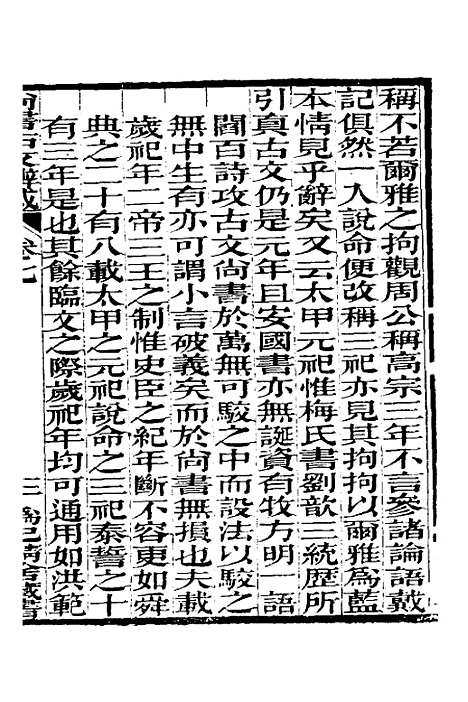 稱不若爾雅之拘觀周公稱高宗三年不言參諸論語戴
記俱然一入說命便改稱三祀亦見其拘拘以爾雅爲藍
本情見乎辭矣又云太甲元祀惟梅氏書劉歆三統歷所
引真古文仍是元年且安國書亦無誕資有牧方明一語
閻百詩攻古文尚書於萬無可駁之中而設法以駁之
無中生有亦可謂小言破義矣而於尚書無損也夫載
歲祀年二帝三王之制惟史臣之紀年斷不容更如舜
典之二十有八載太甲之元祀說命之三祀泰誓之十
有三年是也其餘臨文之際歲祀年均可通用如洪範
卷七
三